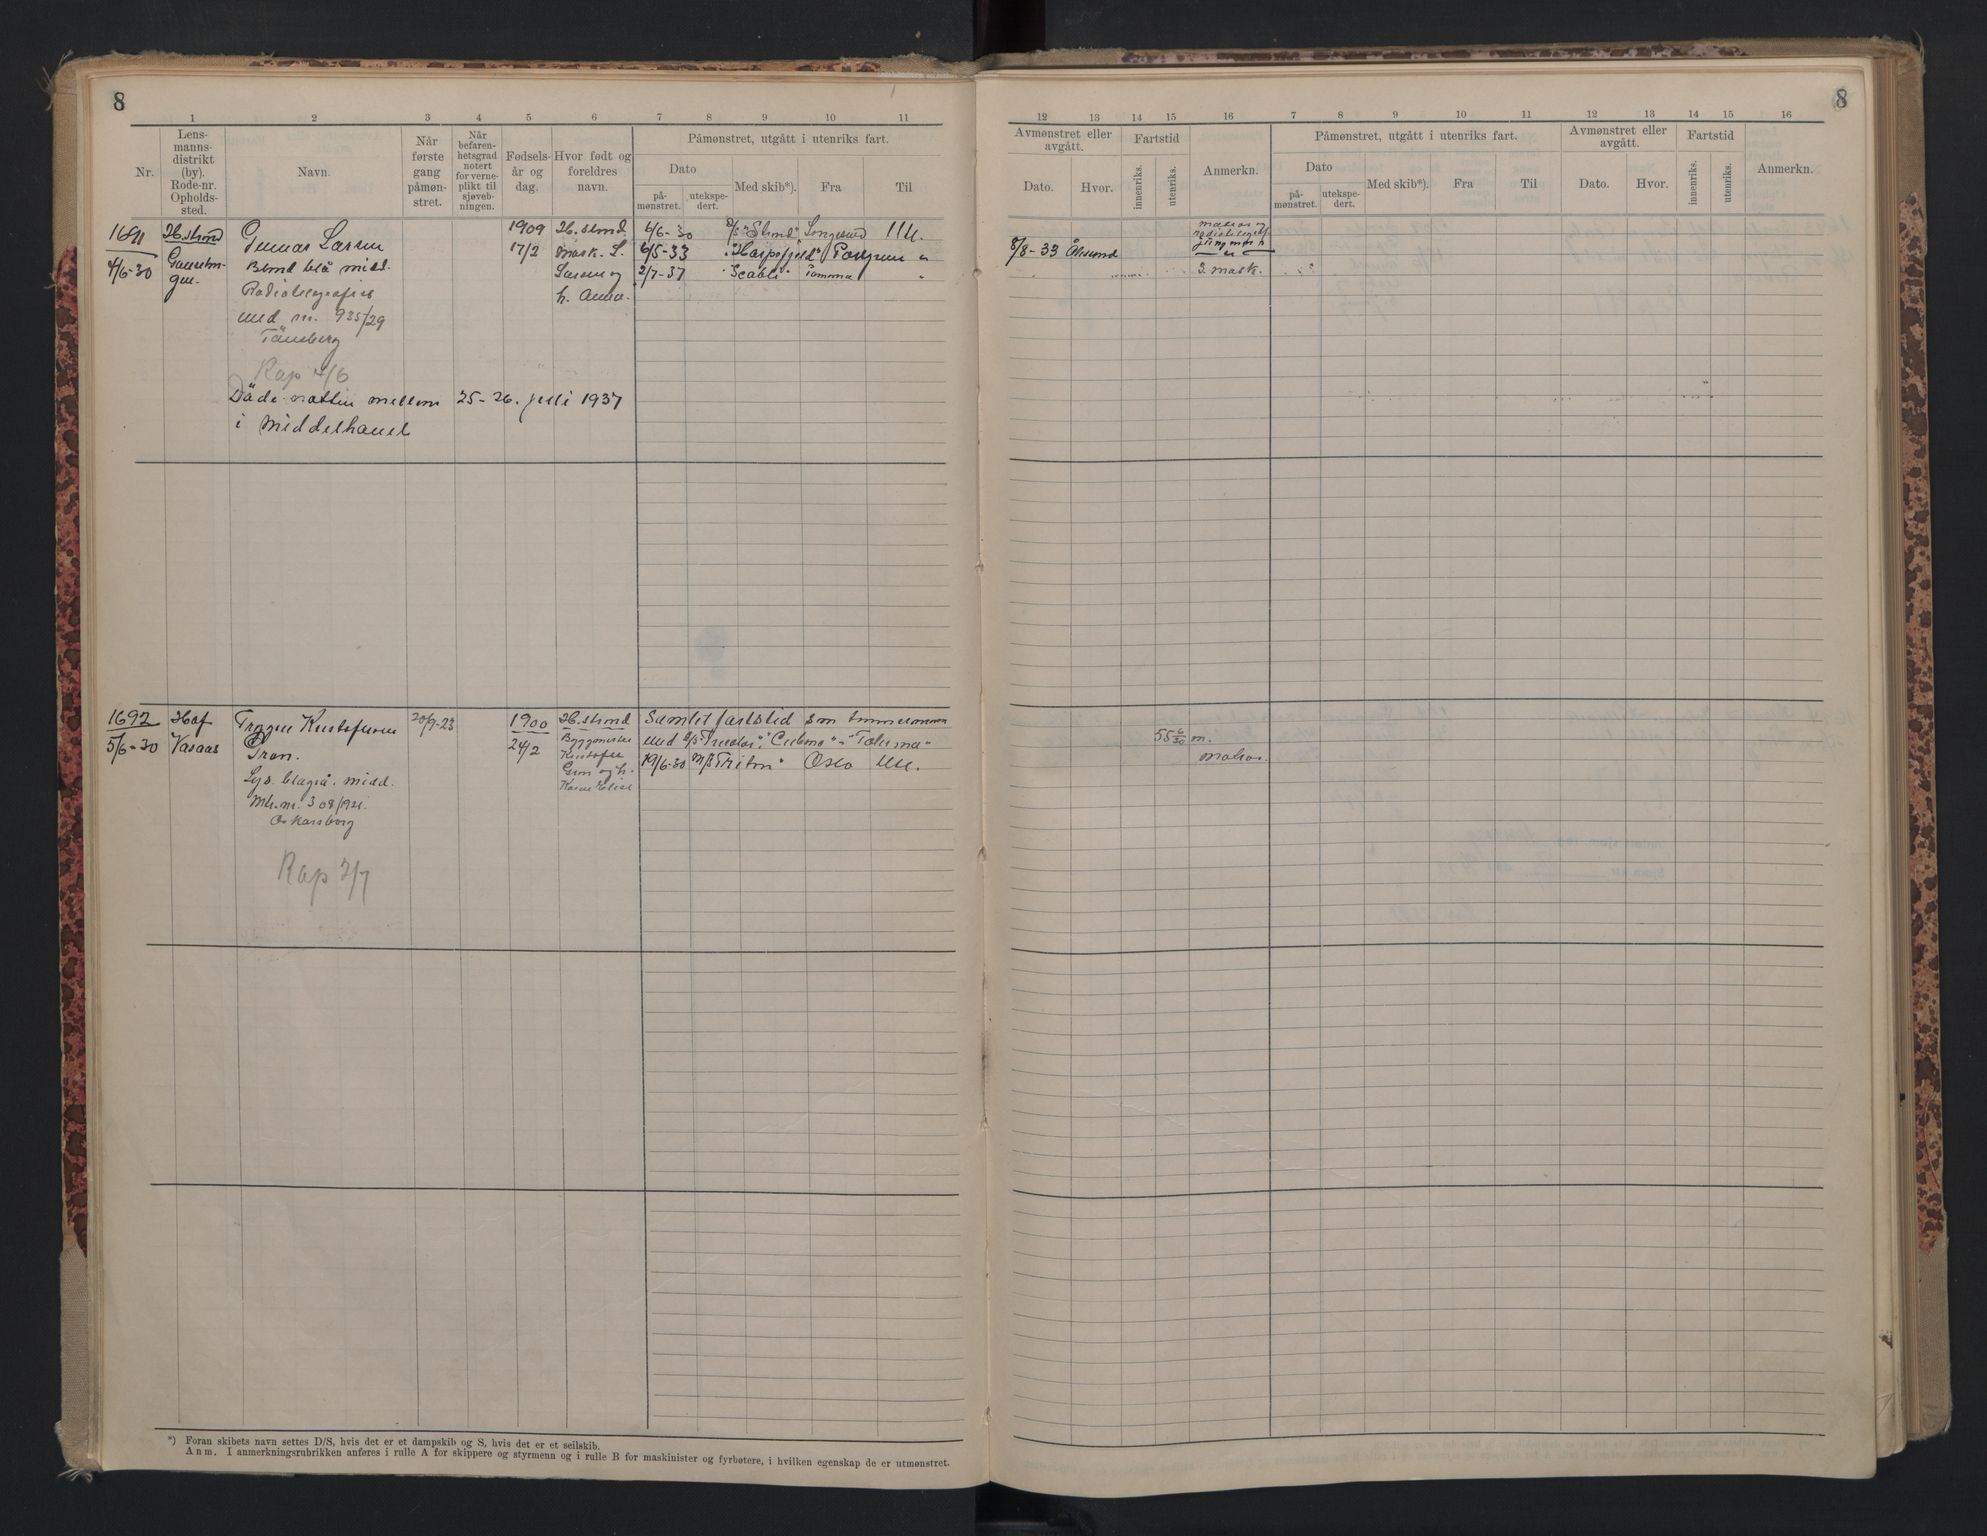 8
8
1 2 3 4 5 6 7 8 9 10 11
Nr.
Lens-
manns-
distrikt
(by).
Rode-nr.
Opholds-
sted.
Navn.
Når
første
gang
påmøn-
stret.
Når
befaren-
hetsgrad
notert
for verne-
plikt til
sjøveb-
ningen.
Fødsels-
år og
dag.
Hvor født og
foreldres
navn.
Påmønstret, utgått i utenriks fart.
Dato
på-
mønstret.
utekspe-
dert.
Med skib*).
Fra
Til
12 13 14 15 16 7 8 9 10 11 12 13 14 15 16
Avmønstret eller
avgått.
Dato.
Hvor.
Fartstid
innenriks.
utenriks.
Anmerkn.
Påmønstret, utgått i utenriks fart.
Dato
på-
mønstret.
utekspe-
dert.
Med skib*).
Fra
Til
Avmønstret eller
avgått.
Dato.
Hvor.
Fartstid
innenriks.
utenriks.
Anmerkn.
1691
4/6-30
H.strand
Gunnar Larsen
Blond blå midd.
Radiotelegrafist
med nr. 935/29
Tönsberg
Rap 4/6
Døde natten mellem 25-26. juli 1937
i Middelhavet
1909
17/2
H.strand
Mask. L.
Larsen og
h. Anna.
4/6-30 D/S "Strind" Langesund Utl.
6/5-33 Porsgrunn "
2/7-37 "
8/8-33 Ålesund
matros og
radiotelegrafist
jungmann
3. mask.
1692
5/6-30
Hof
Vasaas
Trygve Kristofersen
Gran.
Lys. blagrå. midd.
Mh.nr. 308/1921.
Oskarsborg
Rap 2/7
20/9-23
1900
24/2
H.strand
Byggmester
Kristofer
Gran og h.
Karen Elise
Samlet fartstid som tømmermann
med
19/6-30 M/S "Triton" Oslo Utl.
55 6/30 m.
Matros.
*) Foran skibets navn settes D/S, hvis det er et dampskib og S, hvis det er et seilskib.
Anm. I anmerkningsrubrikken anføres i rulle A for skippere og styrmenn og i rulle B for maskinister og fyrbøtere, i hvilken egenskap de er utmønstret.